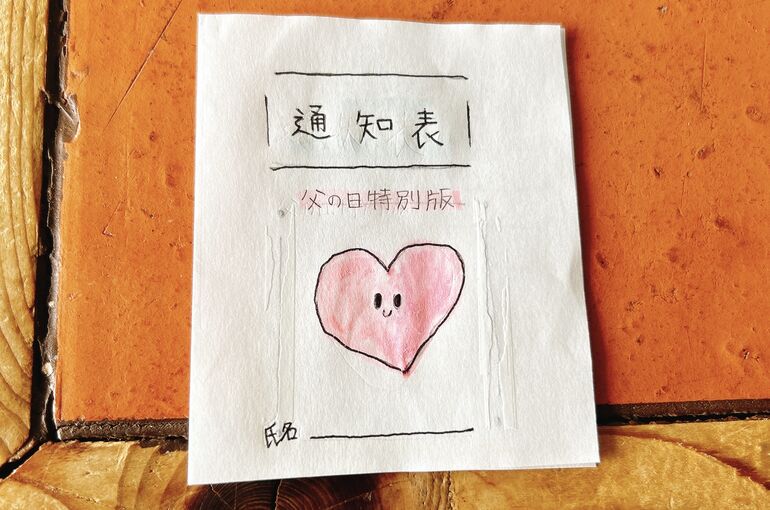 通知表
父の日特別版
氏名